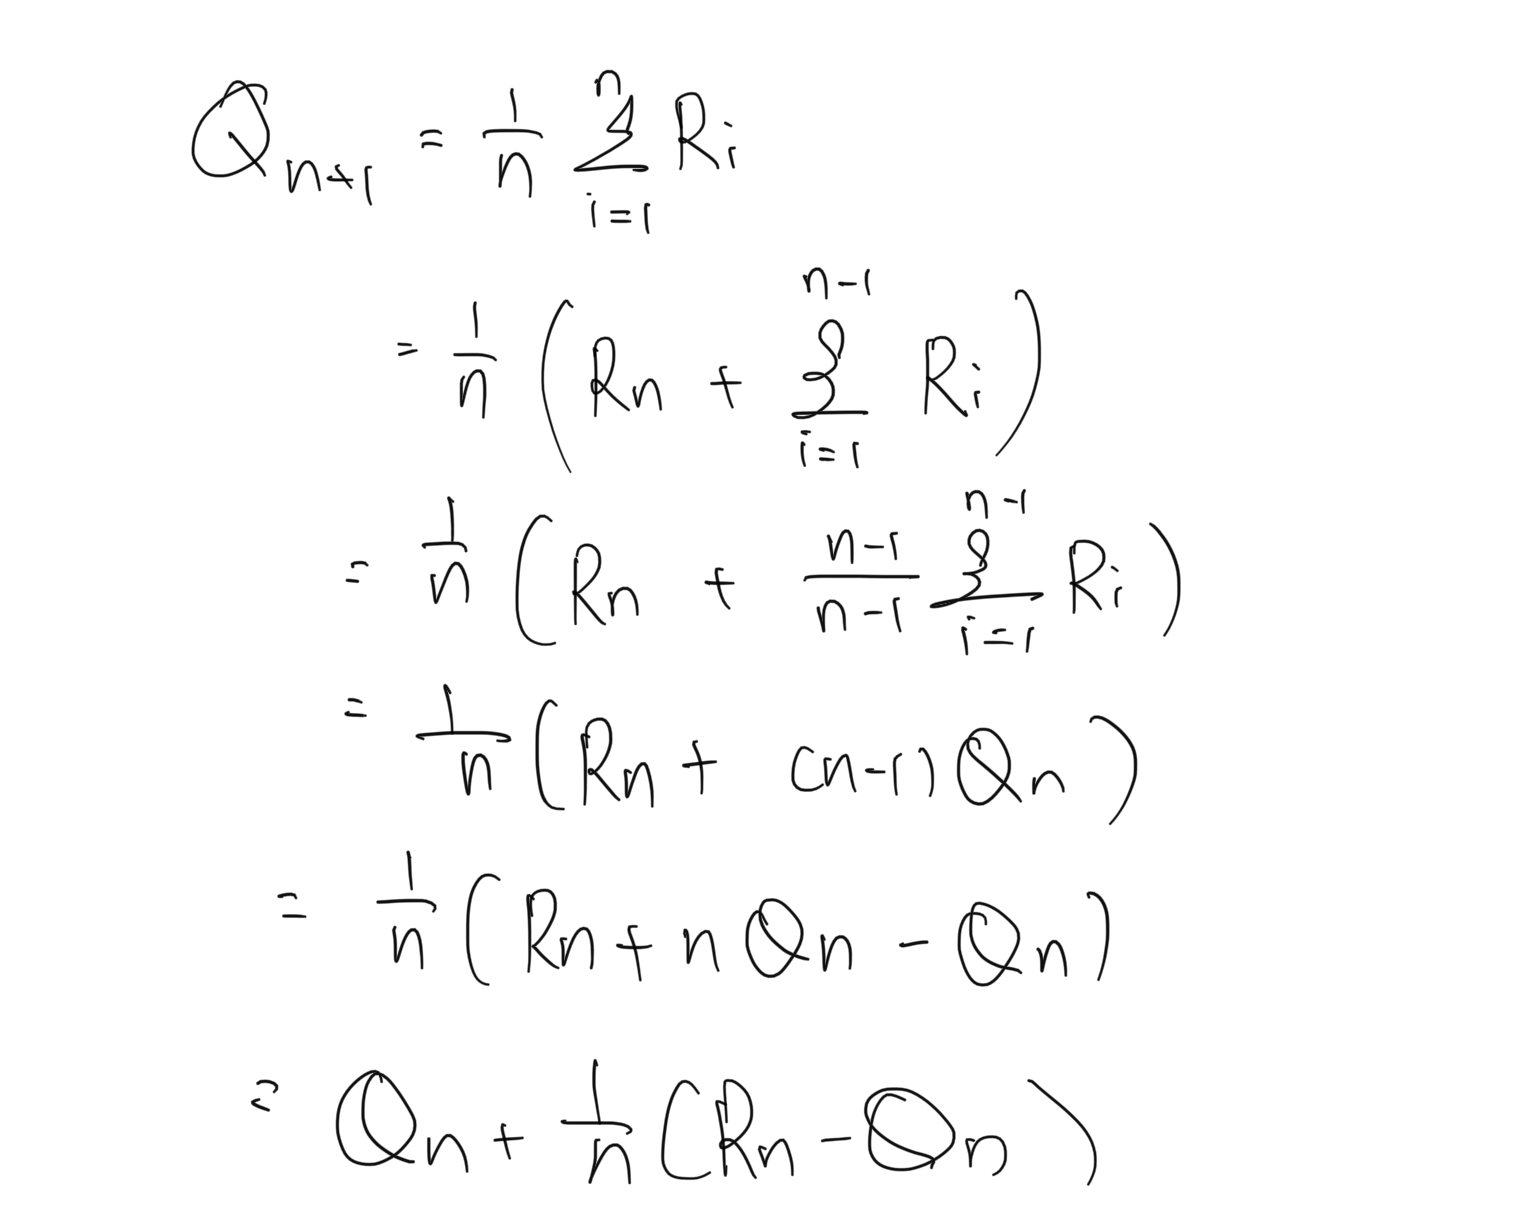 Q_{n+1} = \frac{1}{n} \sum_{i=1}^{n} R_i
= \frac{1}{n} \left( R_n + \sum_{i=1}^{n-1} R_i \right)
= \frac{1}{n} \left( R_n + \frac{n-1}{n-1} \sum_{i=1}^{n-1} R_i \right)
= \frac{1}{n} ( R_n + (n-1) Q_n )
= \frac{1}{n} ( R_n + n Q_n - Q_n )
= Q_n + \frac{1}{n} ( R_n - Q_n )